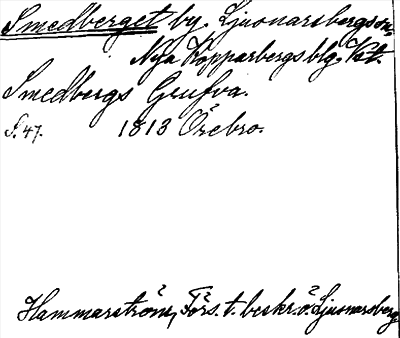 Smedberget by. Ljusnarsbergs sn,
Nya Kopparbergs blg. Vst.
Smedbergs Grufva.
S. 47. 1813 Örebro.
Hammarström, Förs. t. beskr. ö. Ljusnarsberg